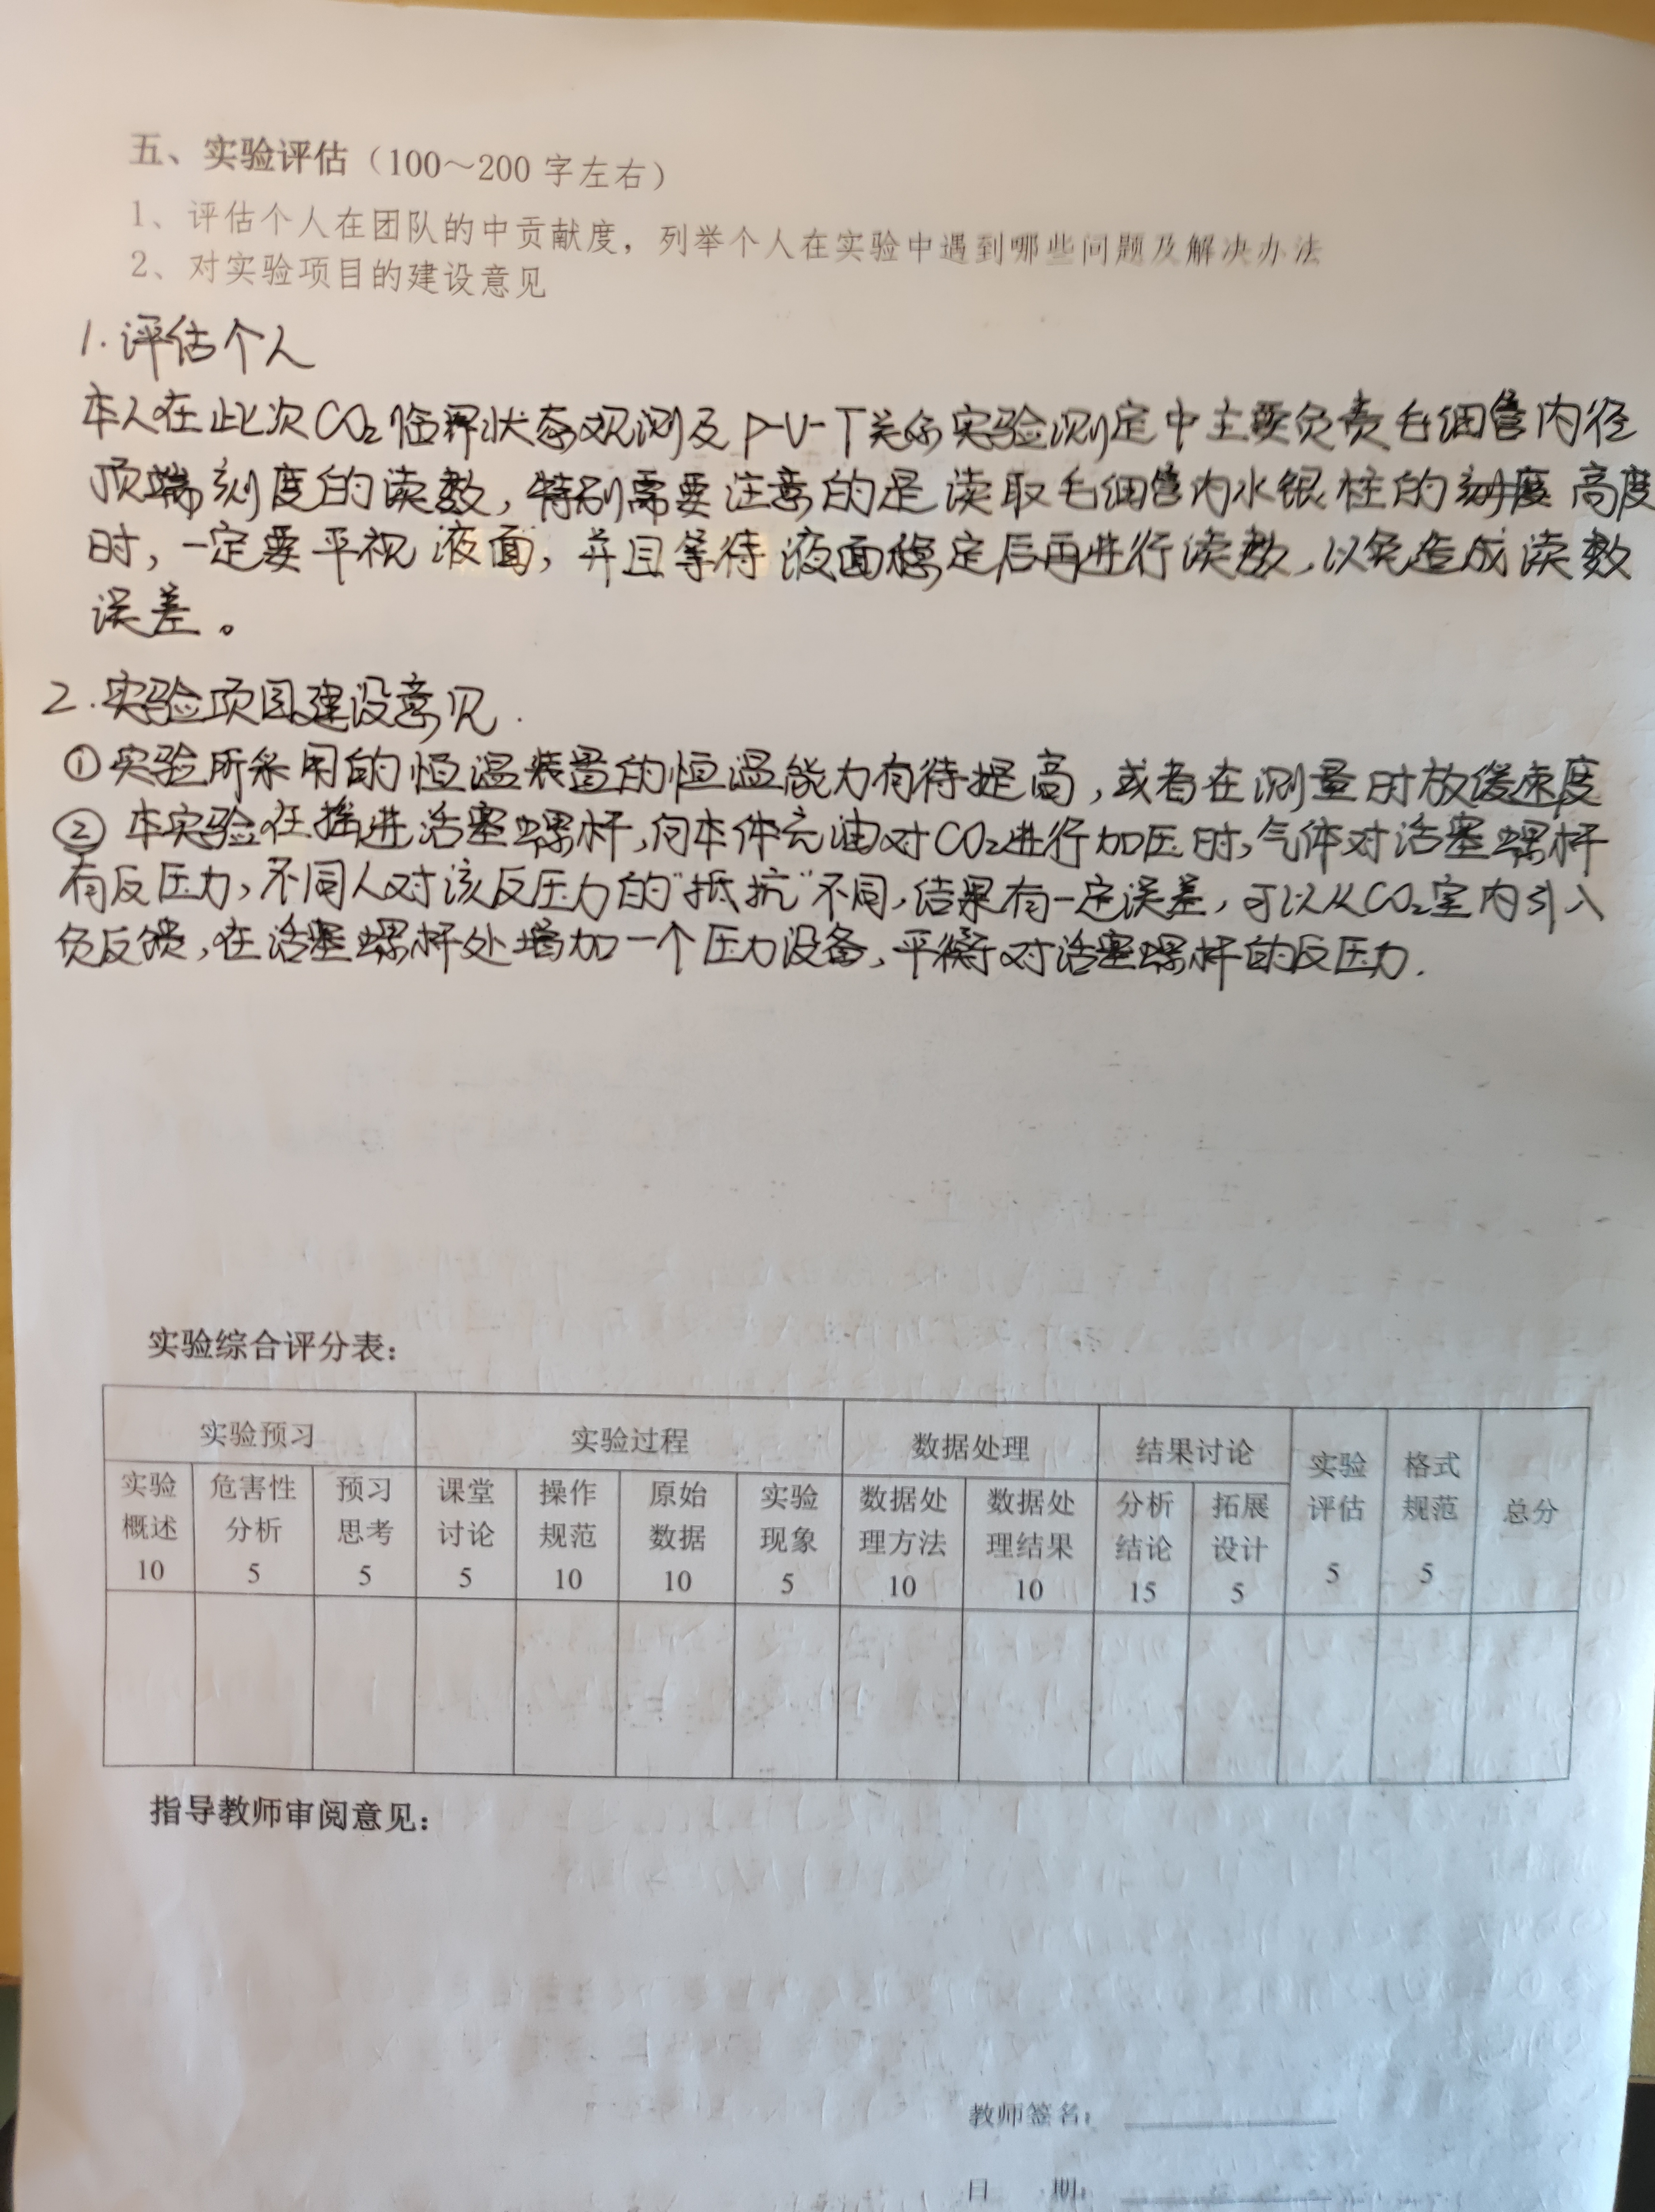 五、实验评估（100～200 字左右）
1、评估个人在团队的中贡献度，列举个人在实验中遇到哪些问题及解决办法
2、对实验项目的建设意见
1.评估个人
本人在此次CO₂临界状态观测及P-V-T关系实验测定中主要负责毛细管内径
顶端刻度的读数，特别需要注意的是读取毛细管内水银柱的刻度高度
时，一定要平视液面，并且等待液面稳定后再进行读数，以免造成读数
误差。
2.实验项目建设意见.
①实验所采用的恒温装置的恒温能力有待提高，或者在测量时放缓速度
②本实验在摇进活塞螺杆，向本体充油对CO₂进行加压时，气体对活塞螺杆
有反压力，不同人对该反压力的"抵抗"不同，结果有一定误差，可以从CO₂室内引入
负反馈，在活塞螺杆处增加一个压力设备，平衡对活塞螺杆的反压力.
实验综合评分表：
实验预习 实验过程 数据处理 结果讨论 实验评估 格式规范 总分
实验概述 危害性分析 预习思考 课堂讨论 操作规范 原始数据 实验现象 数据处理方法 数据处理结果 分析结论 拓展设计
10 5 5 5 10 10 5 10 10 15 5 5 5
指导教师审阅意见：
教师签名：
日 期：